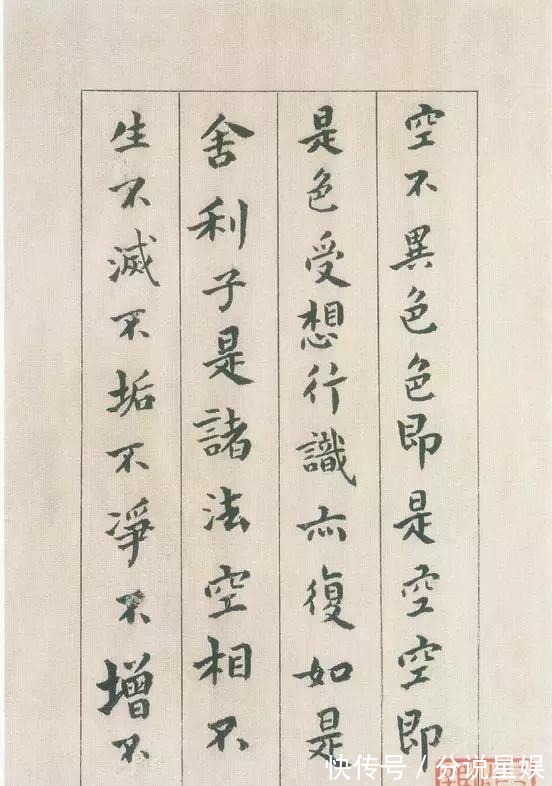 空不異色色即是空空即
是色受想行識亦復如是
舍利子是諸法空相不
生不滅不垢不淨不增不
快传号/分说星娱